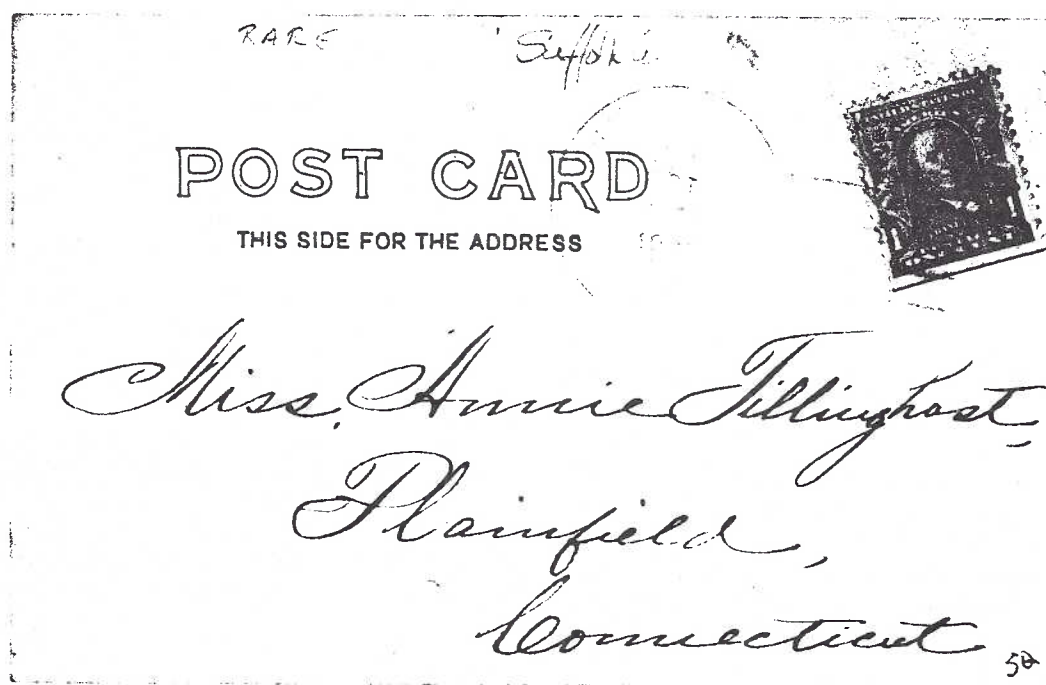 RARE
POST CARD
THIS SIDE FOR THE ADDRESS
Miss. Annie Tillinghast,
Plainfield,
Connecticut